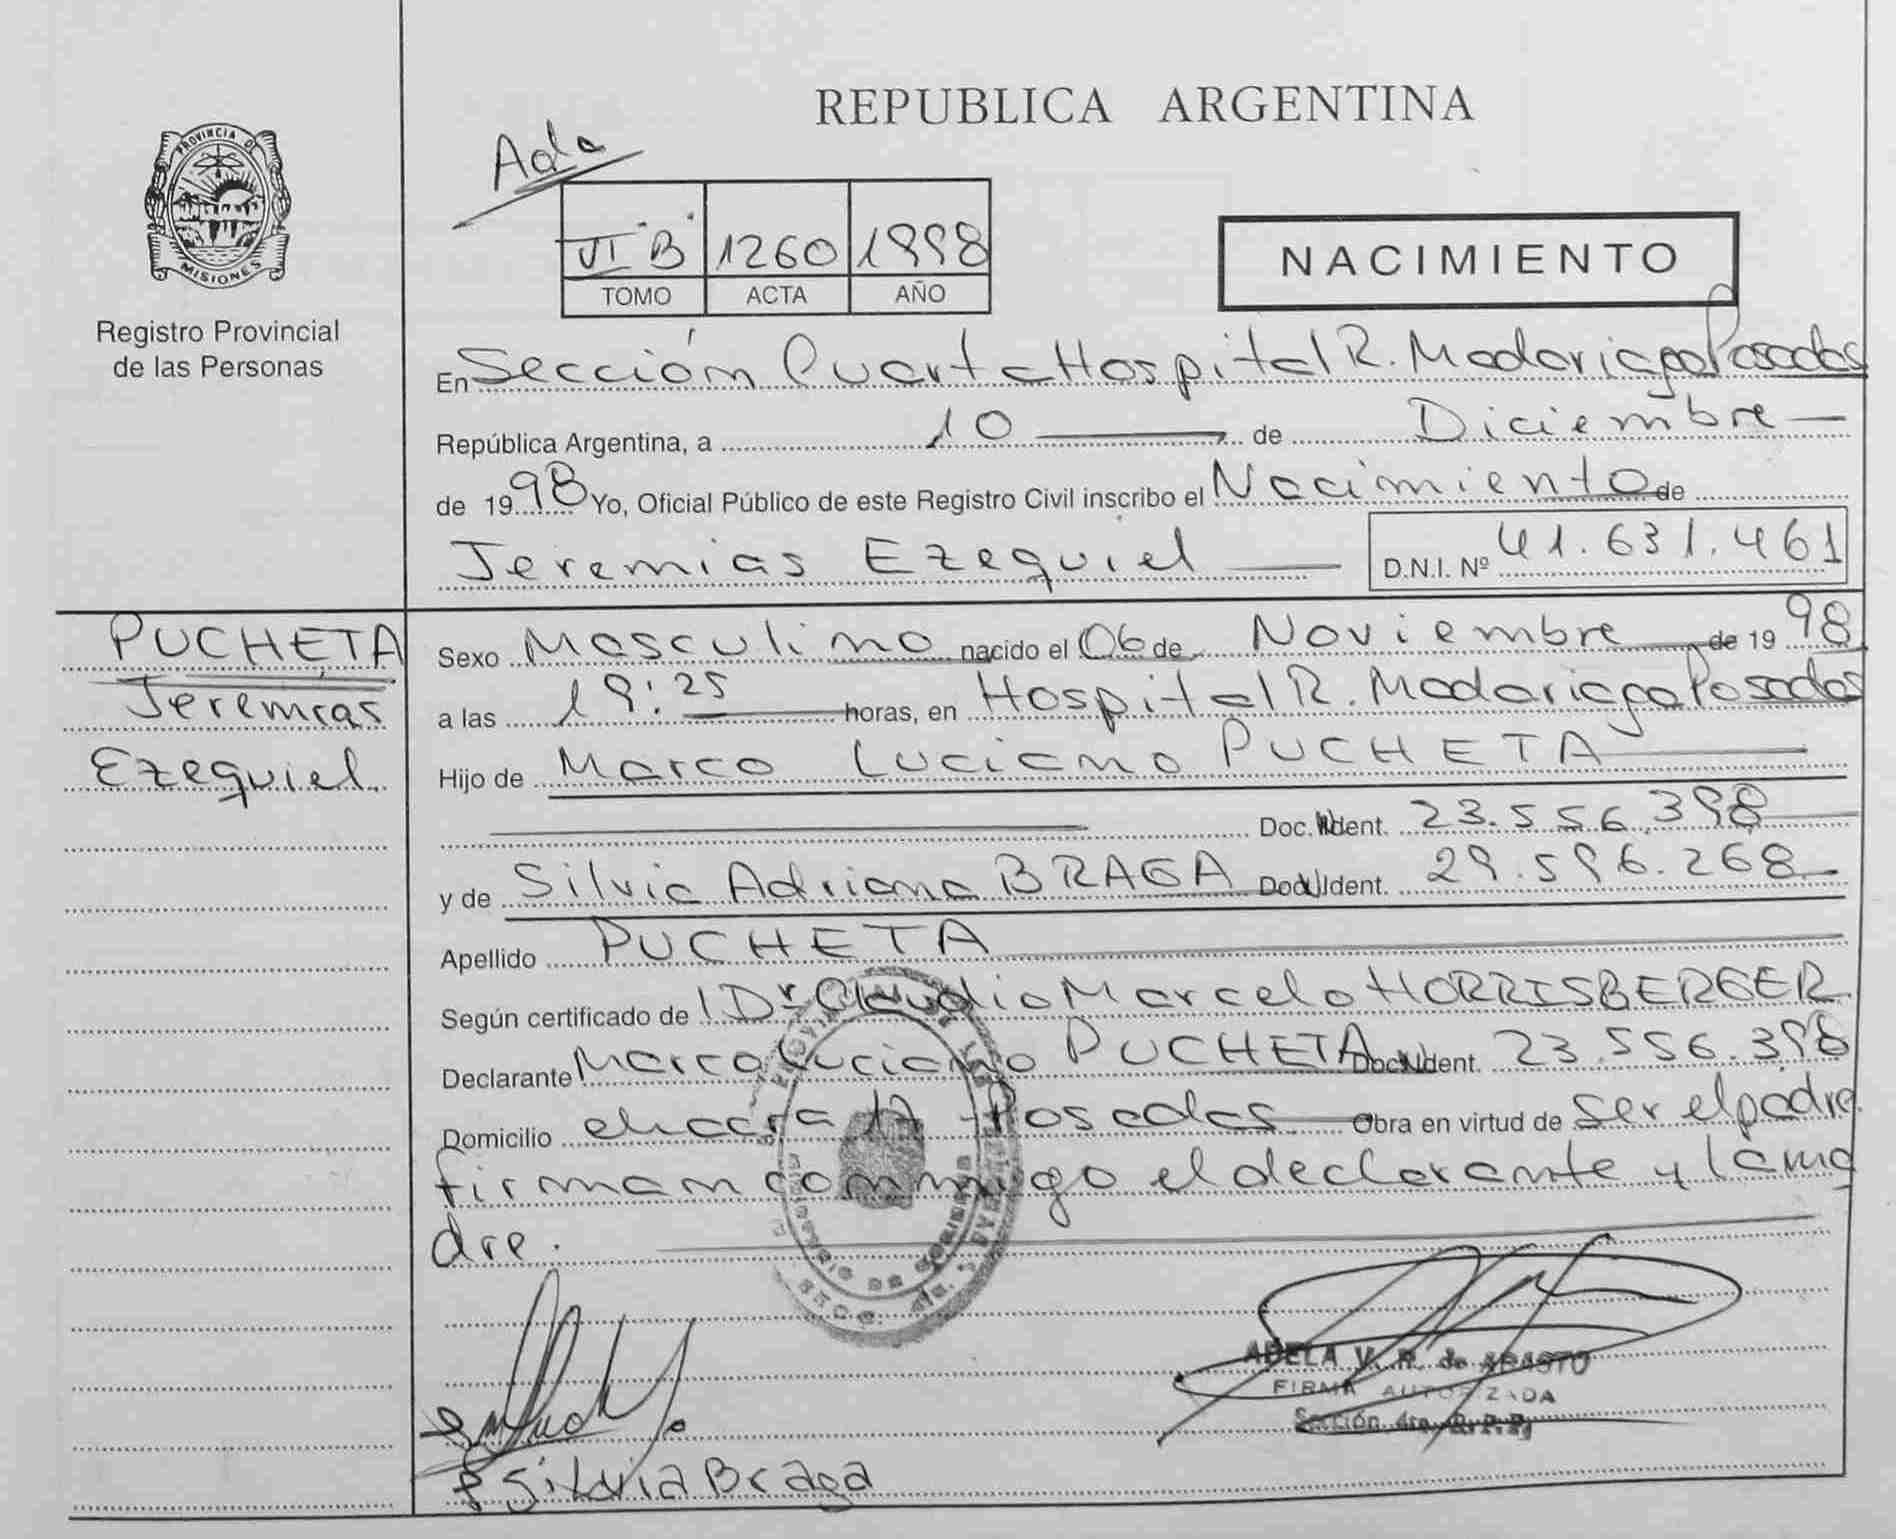 REPUBLICA ARGENTINA
PROVINCIA DE
MISIONES
Registro Provincial
de las Personas
Ada
VI "B" 1260 1998
TOMO ACTA AÑO
NACIMIENTO
En Sección Cuarta Hospital R. Madariaga Posadas
República Argentina, a 10 de Diciembre
de 1998 Yo, Oficial Público de este Registro Civil inscribo el Nacimiento de
Jeremias Ezequiel D.N.I. Nº 41.631.461
PUCHETA
Jeremias
Ezequiel
Sexo Masculino nacido el 06 de Noviembre de 1998
a las 19:25 horas, en Hospital R. Madariaga Posadas
Hijo de Marco Luciano PUCHETA
Doc. Ident. 23.556.398
y de Silvia Adriana BRAGA Doc. Ident. 29.596.268
Apellido PUCHETA
Según certificado de Dr Claudio Marcelo HORRISBERGER
Declarante Marco Luciano PUCHETA Doc. Ident. 23.556.398
Domicilio chacra 17 Posadas Obra en virtud de ser el padre
firman conmigo el declarante y la ma
dre.
ADELA V. R. de ABASTO
FIRMA AUTORIZADA
Sección 4ta. R.P.P.
Silvia Braga